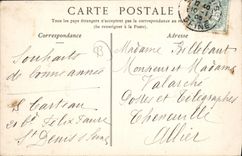 CARTE POSTALE
Tous les pays étrangers n'acceptent pas la correspondance au recto
(se renseigner à la Poste).
Correspondance
Adresse
Souhaits
de bonne année
Madame Billebaut
Monsieur et Madame
Valarché
Postes et Télégraphes
Chareuille
Allier
Carteau
Bd Félix Faure
St Denis s/Seine